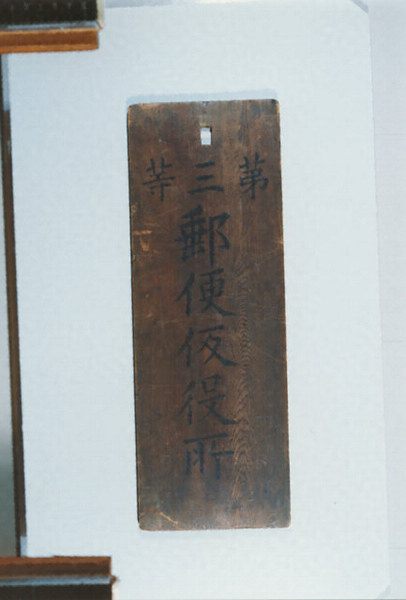 第三等
郵便仮役所